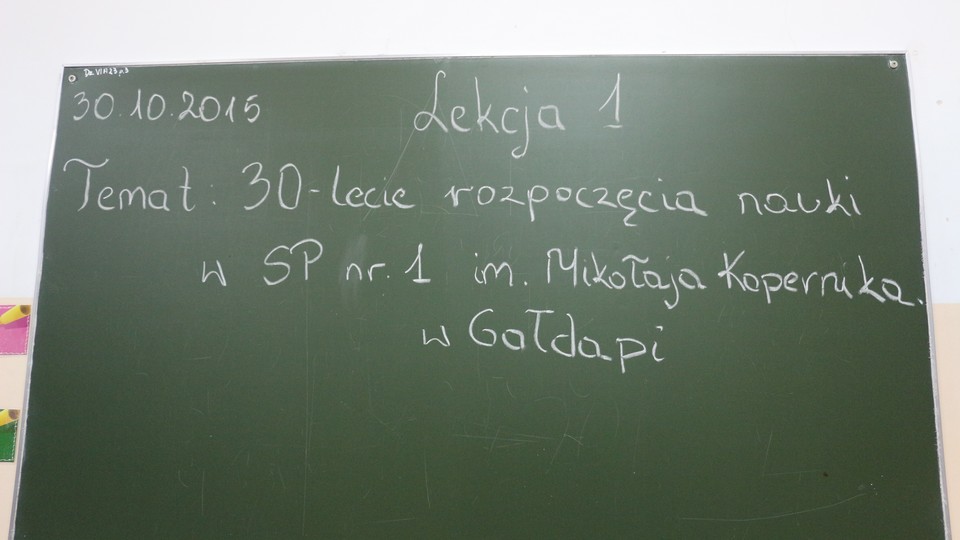 30.10.2015 Lekcja 1
Temat: 30-lecie rozpoczęcia nauki
w SP nr. 1 im. Mikołaja Kopernika.
w Gołdapi